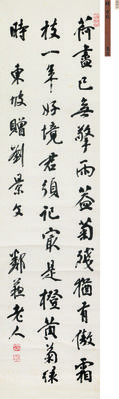 荷盡已無擎雨蓋菊殘猶有傲霜
枝一年好境君須記最是橙黃菊綠
時 東坡贈劉景文 鄰蘇老人